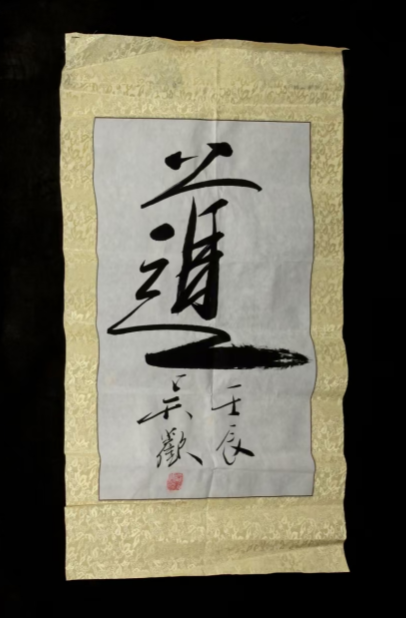 道
壬辰
吴歡